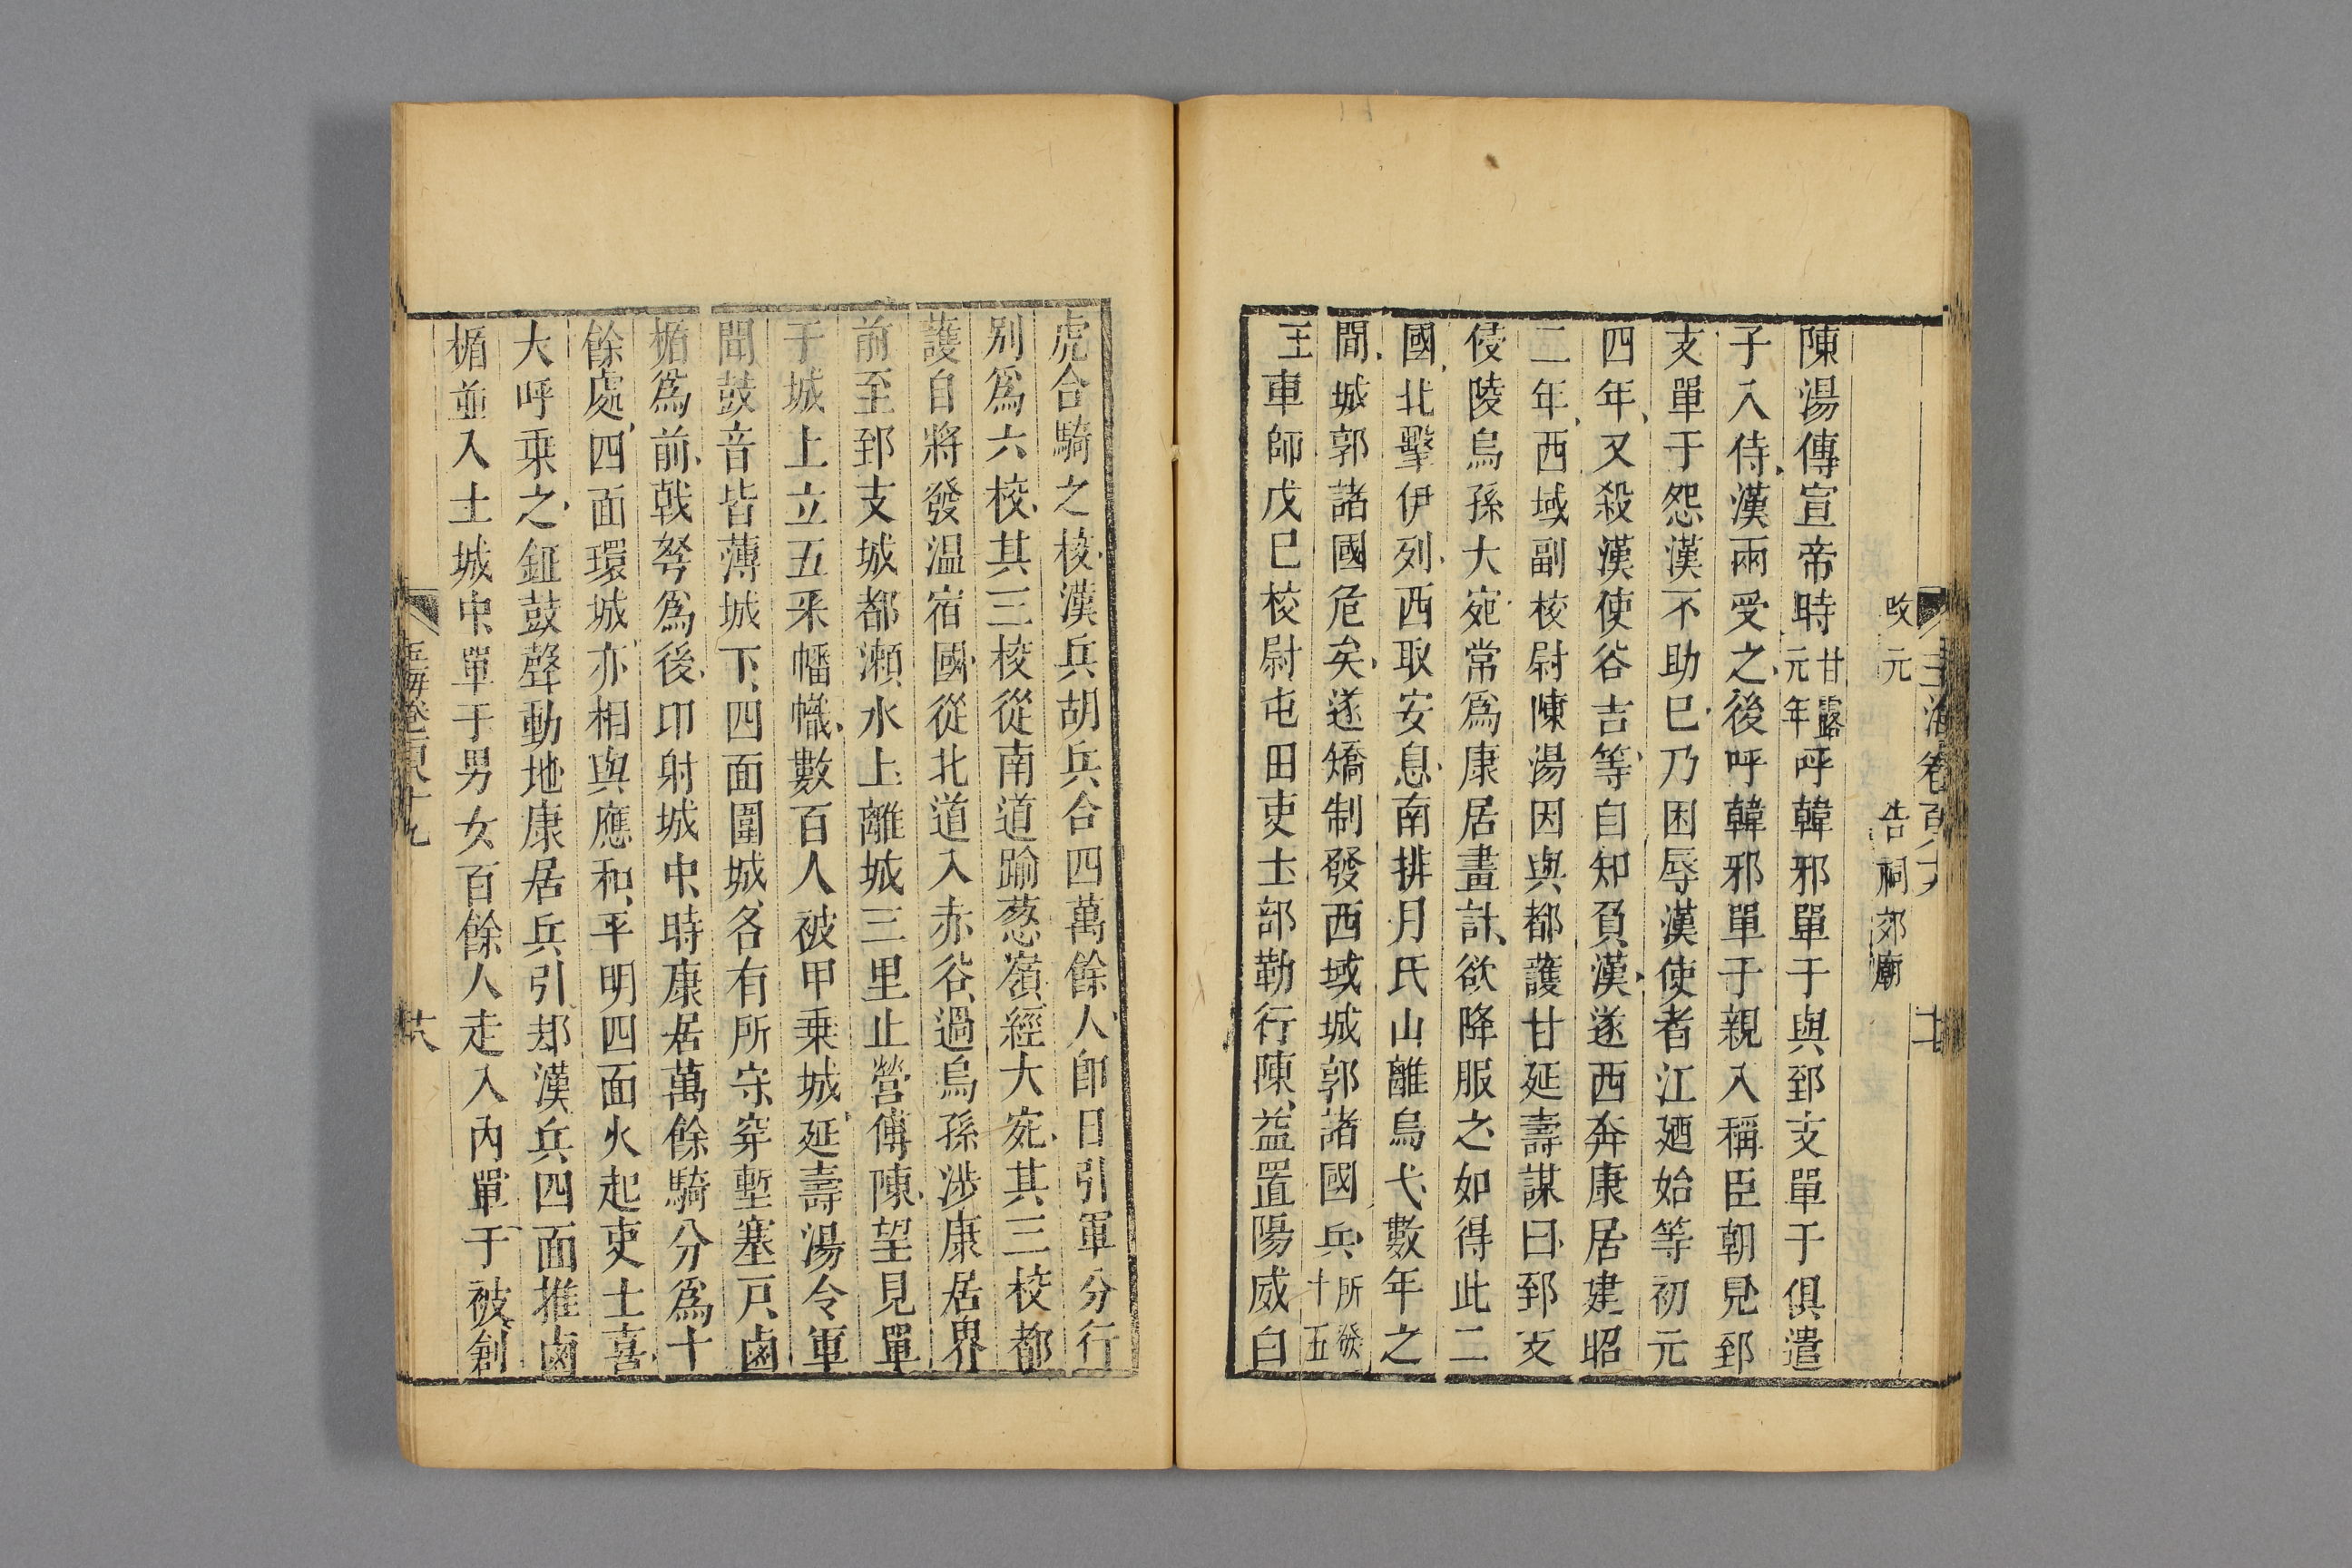 改元 告祠郊廟
陳湯傳宣帝時甘露元年呼韓邪單于與郅支單于俱遣
子入侍漢兩受之後呼韓邪單于親入稱臣朝見郅
支單于怨漢不助已乃困辱漢使者江廼始等初元
四年又殺漢使谷吉等自知負漢遂西奔康居建昭
二年西域副校尉陳湯因與都護甘延壽謀曰郅支
侵陵烏孫大宛常爲康居畫計欲降服之如得此二
國北擊伊列西取安息南排月氏山離烏弋數年之
間城郭諸國危矣遂矯制發西域城郭諸國兵所發十五
王車師戊巳校尉屯田吏士部勒行陳益置陽威白
虎合騎之校漢兵胡兵合四萬餘人卽日引軍分行
別爲六校其三校從南道踰葱嶺經大宛其三校都
護自將發温宿國從北道入赤谷過烏孫涉康居界
前至郅支城都瀬水上離城三里止營傅陳望見單
于城上立五采幡幟數百人被甲乗城延壽湯令軍
聞鼓音皆薄城下四面圍城各有所守穿塹塞戸鹵
楯爲前戟弩爲後卬射城中時康居萬餘騎分爲十
餘處四面環城亦相與應和平明四面火起吏士喜
大呼乗之鉦鼓聲動地康居兵引却漢兵四面推鹵
楯並入土城中單于男女百餘人走入內單于被創
玉海卷百八十九 共八